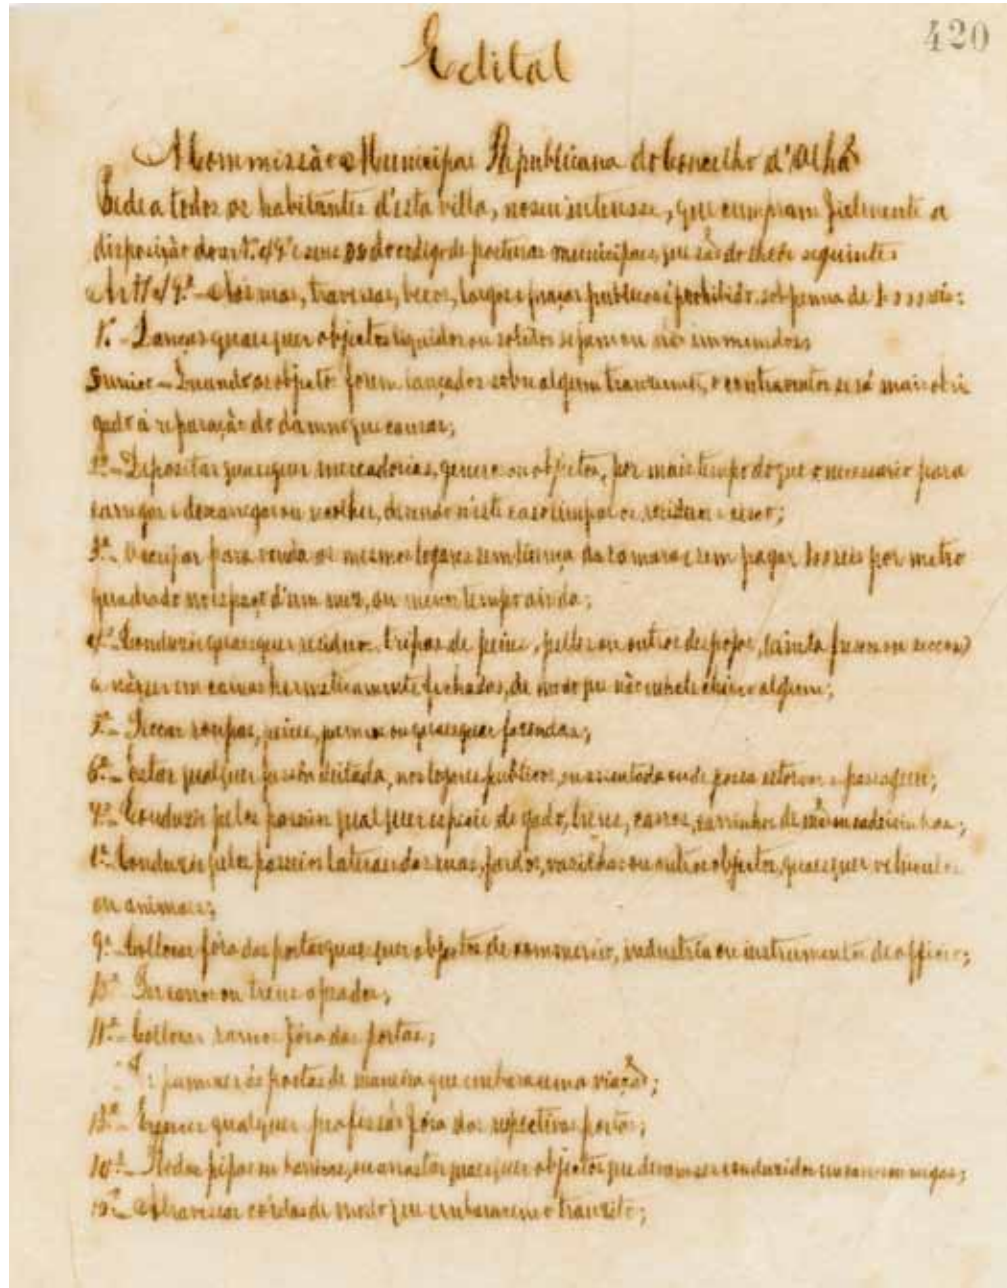 420
Edital
A Commissão Municipal Republicana do Concelho d'Olhão
Pede a todos os habitantes d'esta villa, no seu interesse, que cumpram fielmente a
disposição do art.º 49º e seus do codigo de posturas municipaes, que são do theor seguinte:
Artº 49º - Nas ruas, travessas, becos, largos e praças publicas é prohibido, sob penna de 1000 reis:
1º - Lançar quaesquer objectos liquidos ou solidos sejam ou não immundos;
§ unico - Quando os objectos forem lançados sobre algum transeunte, o contraventor será mais obri
gado á reparação do damno que causar;
2º - Depositar quaesquer mercadorias, generos ou objectos, por mais tempo do que o necessario para
carregar e descarregar ou recolher, devendo n'este caso limpar os residuos e
3º - Occupar para venda os mesmos logares sem licença da camara e sem pagar 100 reis por metro
quadrado no espaço d'um mez, ou menor tempo ainda;
4º - Conduzir quaesquer residuos tripas de peixe, pelles ou outros despojos, (ainda frescos ou seccos)
a não ser em caixas hermeticamente fechadas, de modo que não exhale cheiro algum;
5º - Seccar roupas, peixes, ou quaesquer fazendas;
6º - Estar qualquer pessoa deitada, nos logares publicos, ou assentada onde possa estorvar a passagem;
7º - Conduzir pelos passeios qualquer especie de gado, trens, carros, carrinhos de mão ou cadeirinhas;
8º - Conduzir pelos passeios lateraes das ruas, fardos, vasilhas ou outros objectos, quaesquer vehiculos
ou animaes;
9º - Collocar fóra das portas quaesquer objectos de commercio, industria ou instrumentos de officio;
10º Ter carros ou trens apeados;
11º - Collocar ramos fóra das portas;
ás portas de maneira que embaracem a viação;
13º - Exercer qualquer profissão fóra das respectivas portas;
14º - Rodar pipas ou barricas, ou arrastar quaesquer objectos que devam ser conduzidos em carros ou zorras;
15º - Atravessar cordas de modo que embaracem o transito;